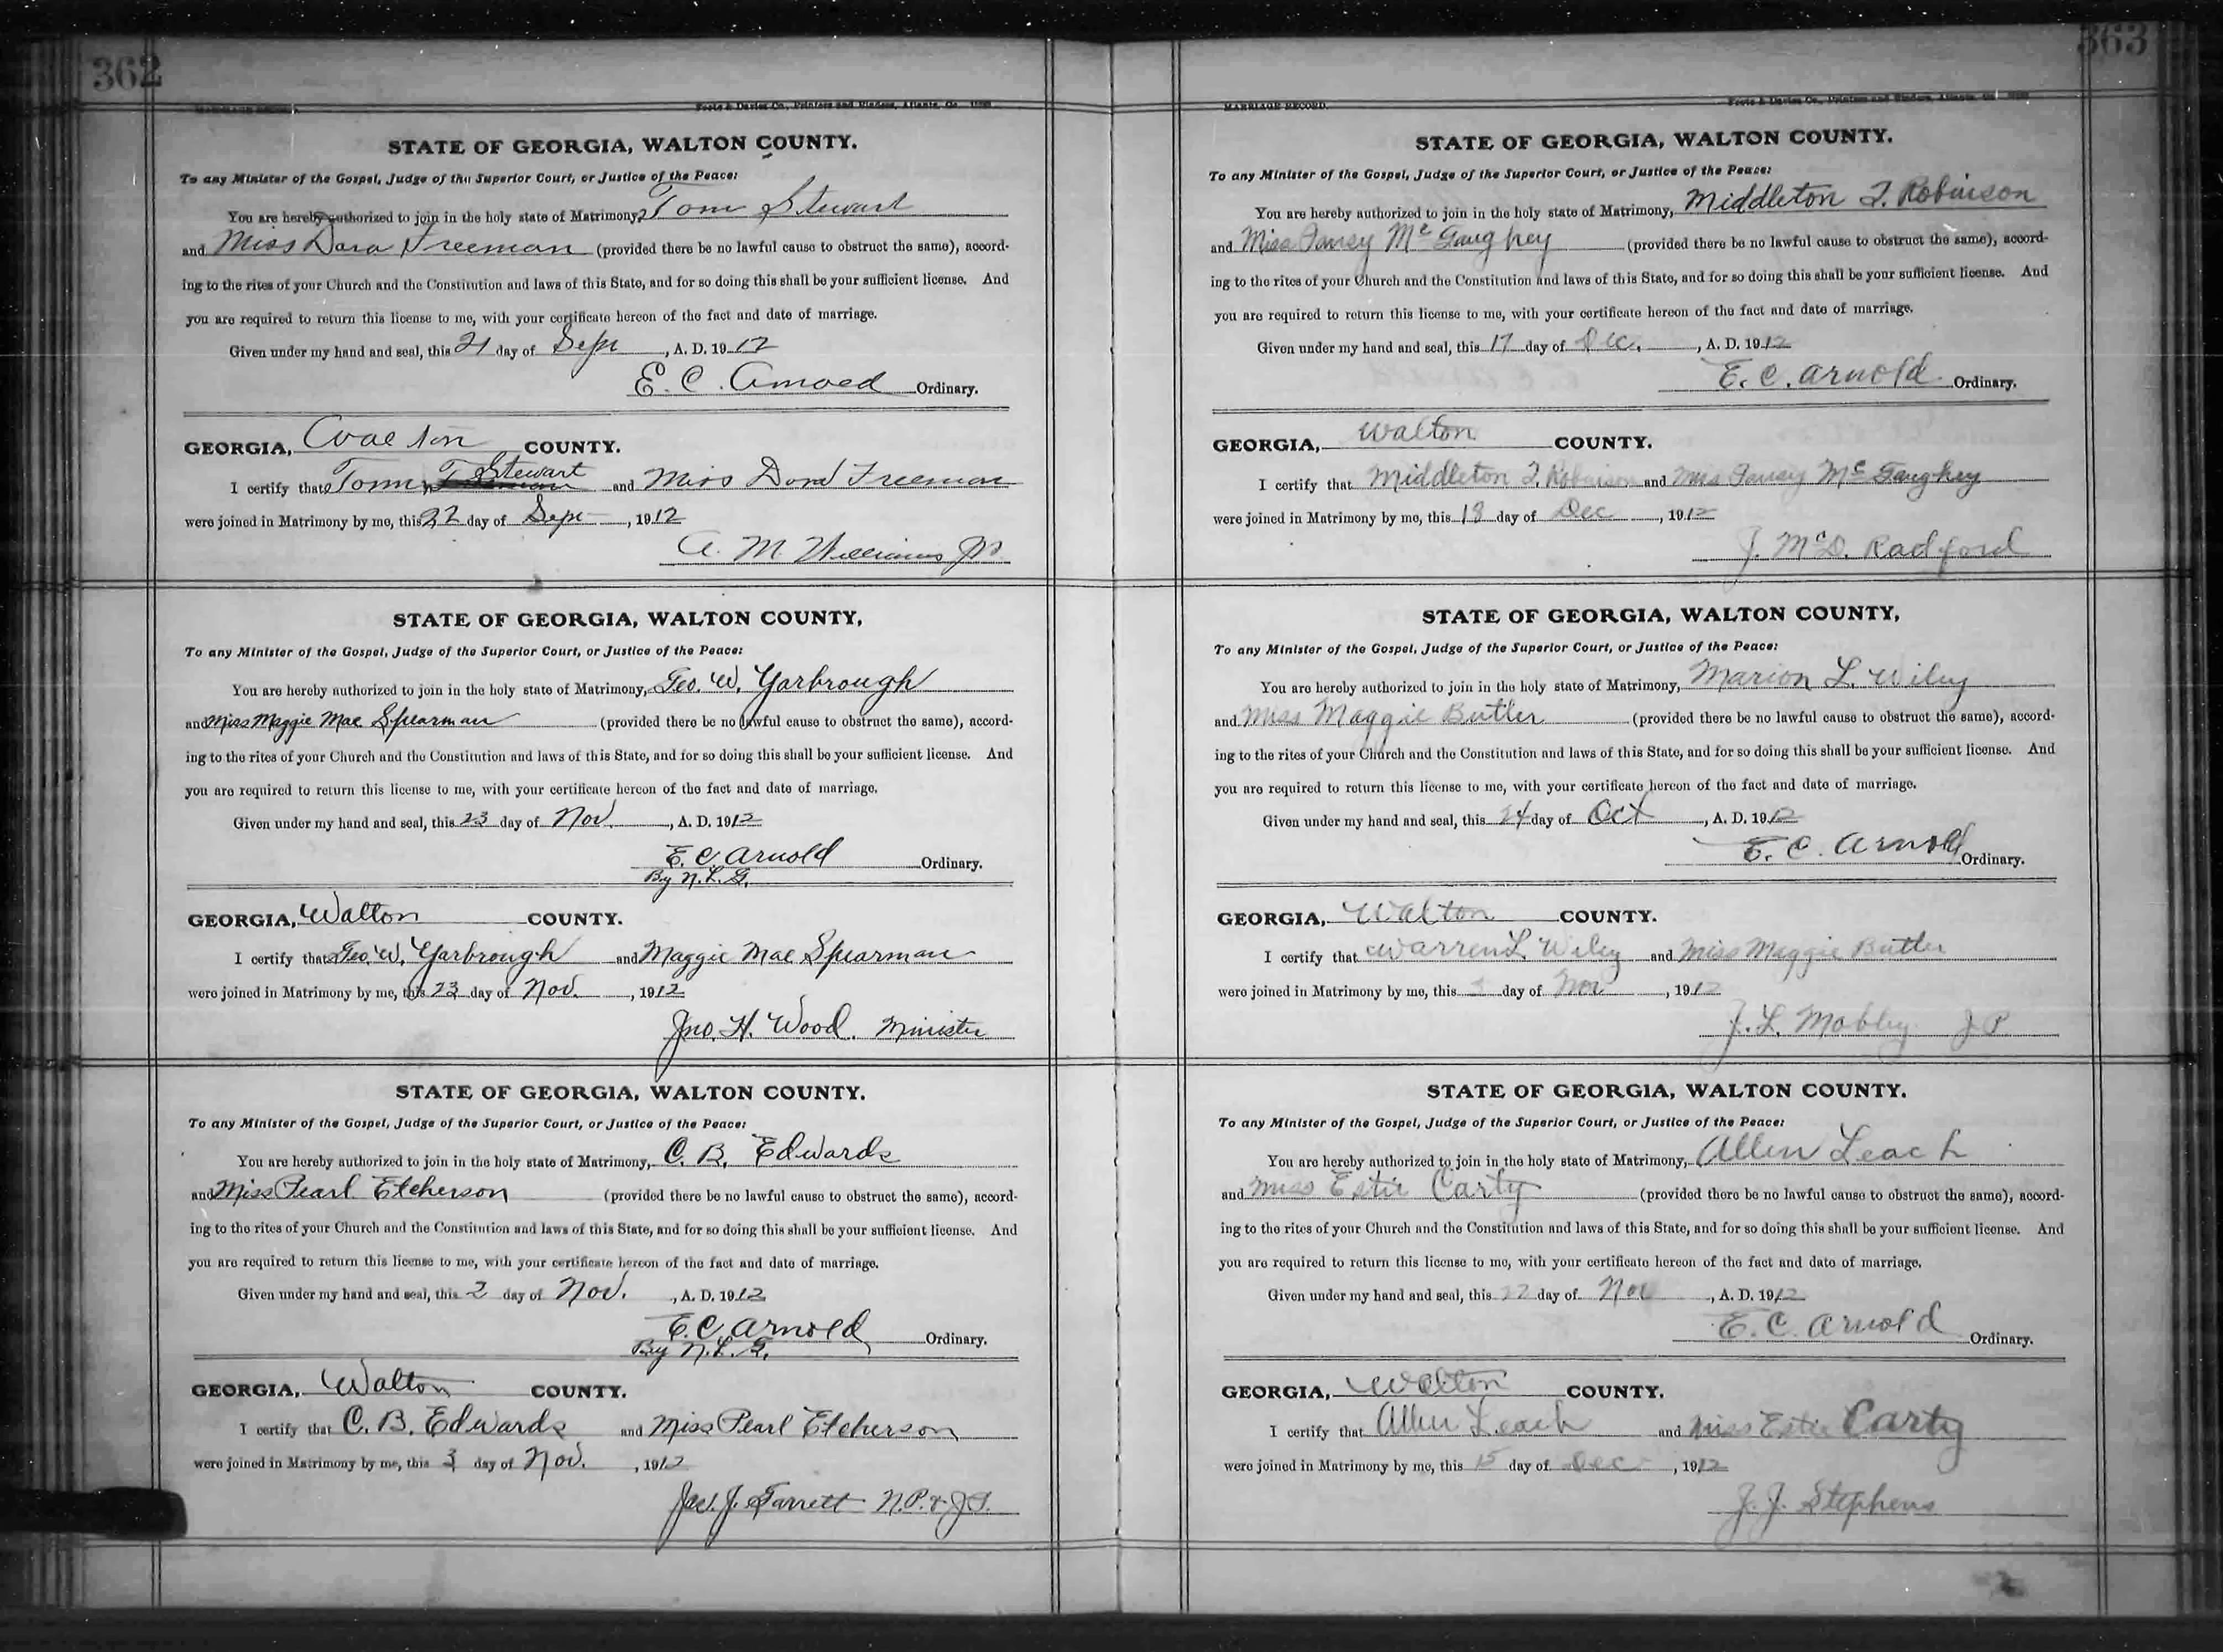 362
Foote & Davies Co., Printers and Binders, Atlanta, Ga.
STATE OF GEORGIA, WALTON COUNTY.
To any Minister of the Gospel, Judge of the Superior Court, or Justice of the Peace:
You are hereby authorized to join in the holy state of Matrimony, Tom Stewart
and Miss Dora Freeman (provided there be no lawful cause to obstruct the same), accord-
ing to the rites of your Church and the Constitution and laws of this State, and for so doing this shall be your sufficient license. And
you are required to return this license to me, with your certificate hereon of the fact and date of marriage.
Given under my hand and seal, this 21 day of Sept, A. D. 1912
E. C. Arnold Ordinary.
GEORGIA, Walton COUNTY.
I certify that Tom Stewart and Miss Dora Freeman
were joined in Matrimony by me, this 22 day of Sept, 1912
A. M. Williams JP
STATE OF GEORGIA, WALTON COUNTY,
To any Minister of the Gospel, Judge of the Superior Court, or Justice of the Peace:
You are hereby authorized to join in the holy state of Matrimony, Geo. W. Yarbrough
and Miss Maggie Mae Spearman (provided there be no lawful cause to obstruct the same), accord-
ing to the rites of your Church and the Constitution and laws of this State, and for so doing this shall be your sufficient license. And
you are required to return this license to me, with your certificate hereon of the fact and date of marriage.
Given under my hand and seal, this 23 day of Nov., A. D. 1912
E. C. Arnold Ordinary.
By N. L. G.
GEORGIA, Walton COUNTY.
I certify that Geo. W. Yarbrough and Maggie Mae Spearman
were joined in Matrimony by me, this 23 day of Nov., 1912
Jno. H. Wood, Minister
STATE OF GEORGIA, WALTON COUNTY.
To any Minister of the Gospel, Judge of the Superior Court, or Justice of the Peace:
You are hereby authorized to join in the holy state of Matrimony, C. B. Edwards
and Miss Pearl Etcherson (provided there be no lawful cause to obstruct the same), accord-
ing to the rites of your Church and the Constitution and laws of this State, and for so doing this shall be your sufficient license. And
you are required to return this license to me, with your certificate hereon of the fact and date of marriage.
Given under my hand and seal, this 2 day of Nov., A. D. 1912
E. C. Arnold Ordinary.
By N. L. G.
GEORGIA, Walton COUNTY.
I certify that C. B. Edwards and Miss Pearl Etcherson
were joined in Matrimony by me, this 3 day of Nov., 1912
J. Garrett N.P. & J.P.
363
MARRIAGE RECORD.
Foote & Davies Co., Printers and Binders, Atlanta, Ga.
STATE OF GEORGIA, WALTON COUNTY.
To any Minister of the Gospel, Judge of the Superior Court, or Justice of the Peace:
You are hereby authorized to join in the holy state of Matrimony, Middleton T. Robinson
and Miss Fansy McGaughey (provided there be no lawful cause to obstruct the same), accord-
ing to the rites of your Church and the Constitution and laws of this State, and for so doing this shall be your sufficient license. And
you are required to return this license to me, with your certificate hereon of the fact and date of marriage.
Given under my hand and seal, this 17 day of Dec., A. D. 1912
E. C. Arnold Ordinary.
GEORGIA, Walton COUNTY.
I certify that Middleton T. Robinson and Miss Fansy McGaughey
were joined in Matrimony by me, this 18 day of Dec, 1912
J. McD. Radford
STATE OF GEORGIA, WALTON COUNTY,
To any Minister of the Gospel, Judge of the Superior Court, or Justice of the Peace:
You are hereby authorized to join in the holy state of Matrimony, Marion L. Wiley
and Miss Maggie Butler (provided there be no lawful cause to obstruct the same), accord-
ing to the rites of your Church and the Constitution and laws of this State, and for so doing this shall be your sufficient license. And
you are required to return this license to me, with your certificate hereon of the fact and date of marriage.
Given under my hand and seal, this 24 day of Oct, A. D. 1912
E. C. Arnold Ordinary.
GEORGIA, Walton COUNTY.
I certify that Warren L. Wiley and Miss Maggie Butler
were joined in Matrimony by me, this 3 day of Nov, 1912
J. L. Mobley J P
STATE OF GEORGIA, WALTON COUNTY.
To any Minister of the Gospel, Judge of the Superior Court, or Justice of the Peace:
You are hereby authorized to join in the holy state of Matrimony, Allen Leach
and Miss Estie Carty (provided there be no lawful cause to obstruct the same), accord-
ing to the rites of your Church and the Constitution and laws of this State, and for so doing this shall be your sufficient license. And
you are required to return this license to me, with your certificate hereon of the fact and date of marriage.
Given under my hand and seal, this 22 day of Nov, A. D. 1912
E. C. Arnold Ordinary.
GEORGIA, Walton COUNTY.
I certify that Allen Leach and Miss Estie Carty
were joined in Matrimony by me, this 15 day of Dec, 1912
J. J. Stephens